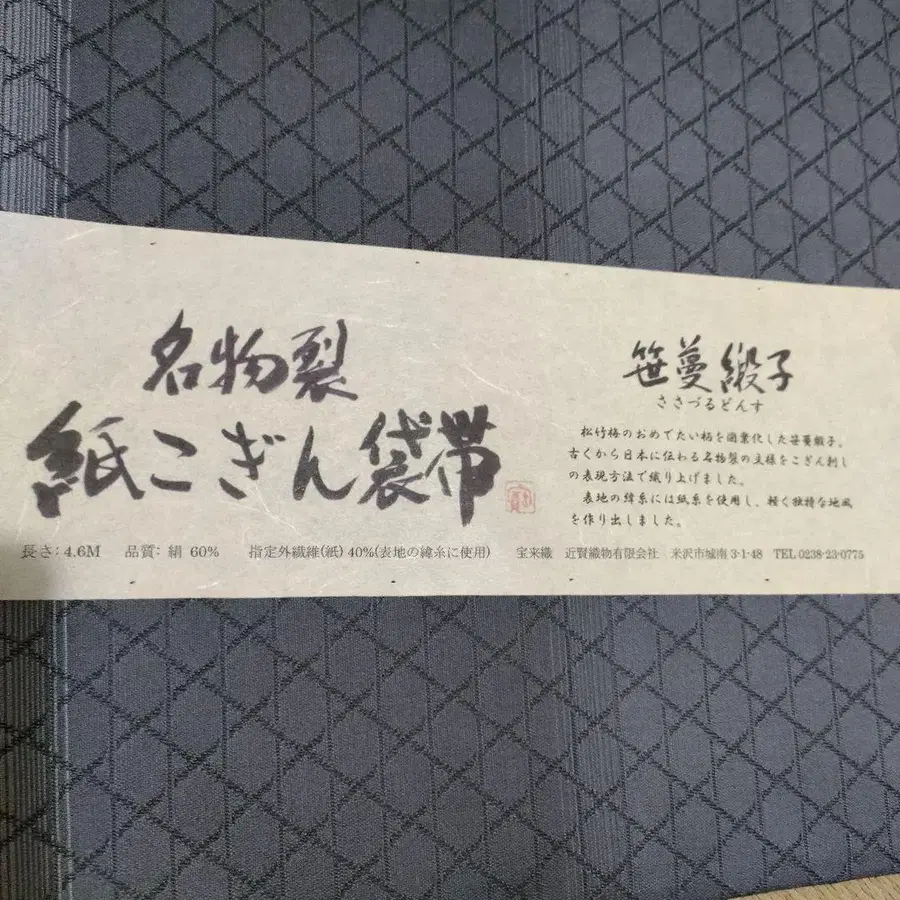 名物裂
紙こぎん袋帯
笹蔓緞子
ささづるどんす
松竹梅のおめでたい柄を図案化した笹蔓緞子。
古くから日本に伝わる名物裂の文様をこぎん刺し
の表現方法で織り上げました。
表地の緯糸には紙糸を使用し、軽く独特な地風
を作り出しました。
長さ：4.6M 品質：絹 60% 指定外繊維(紙) 40%(表地の緯糸に使用) 宝来織 近賢織物有限会社 米沢市城南3-1-48 TEL 0238-23-0775